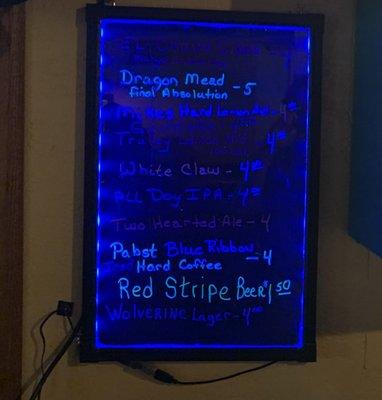 Dragon Mead
Final Absolution - 5
Mikes Hard Lemonade - 4⁰⁰
Truly
White Claw - 4⁰⁰
All Day IPA - 4⁰⁰
Two Hearted Ale - 4
Pabst Blue Ribbon
Hard Coffee - 4
Red Stripe Beer $1⁵⁰
Wolverine Lager - 4⁰⁰